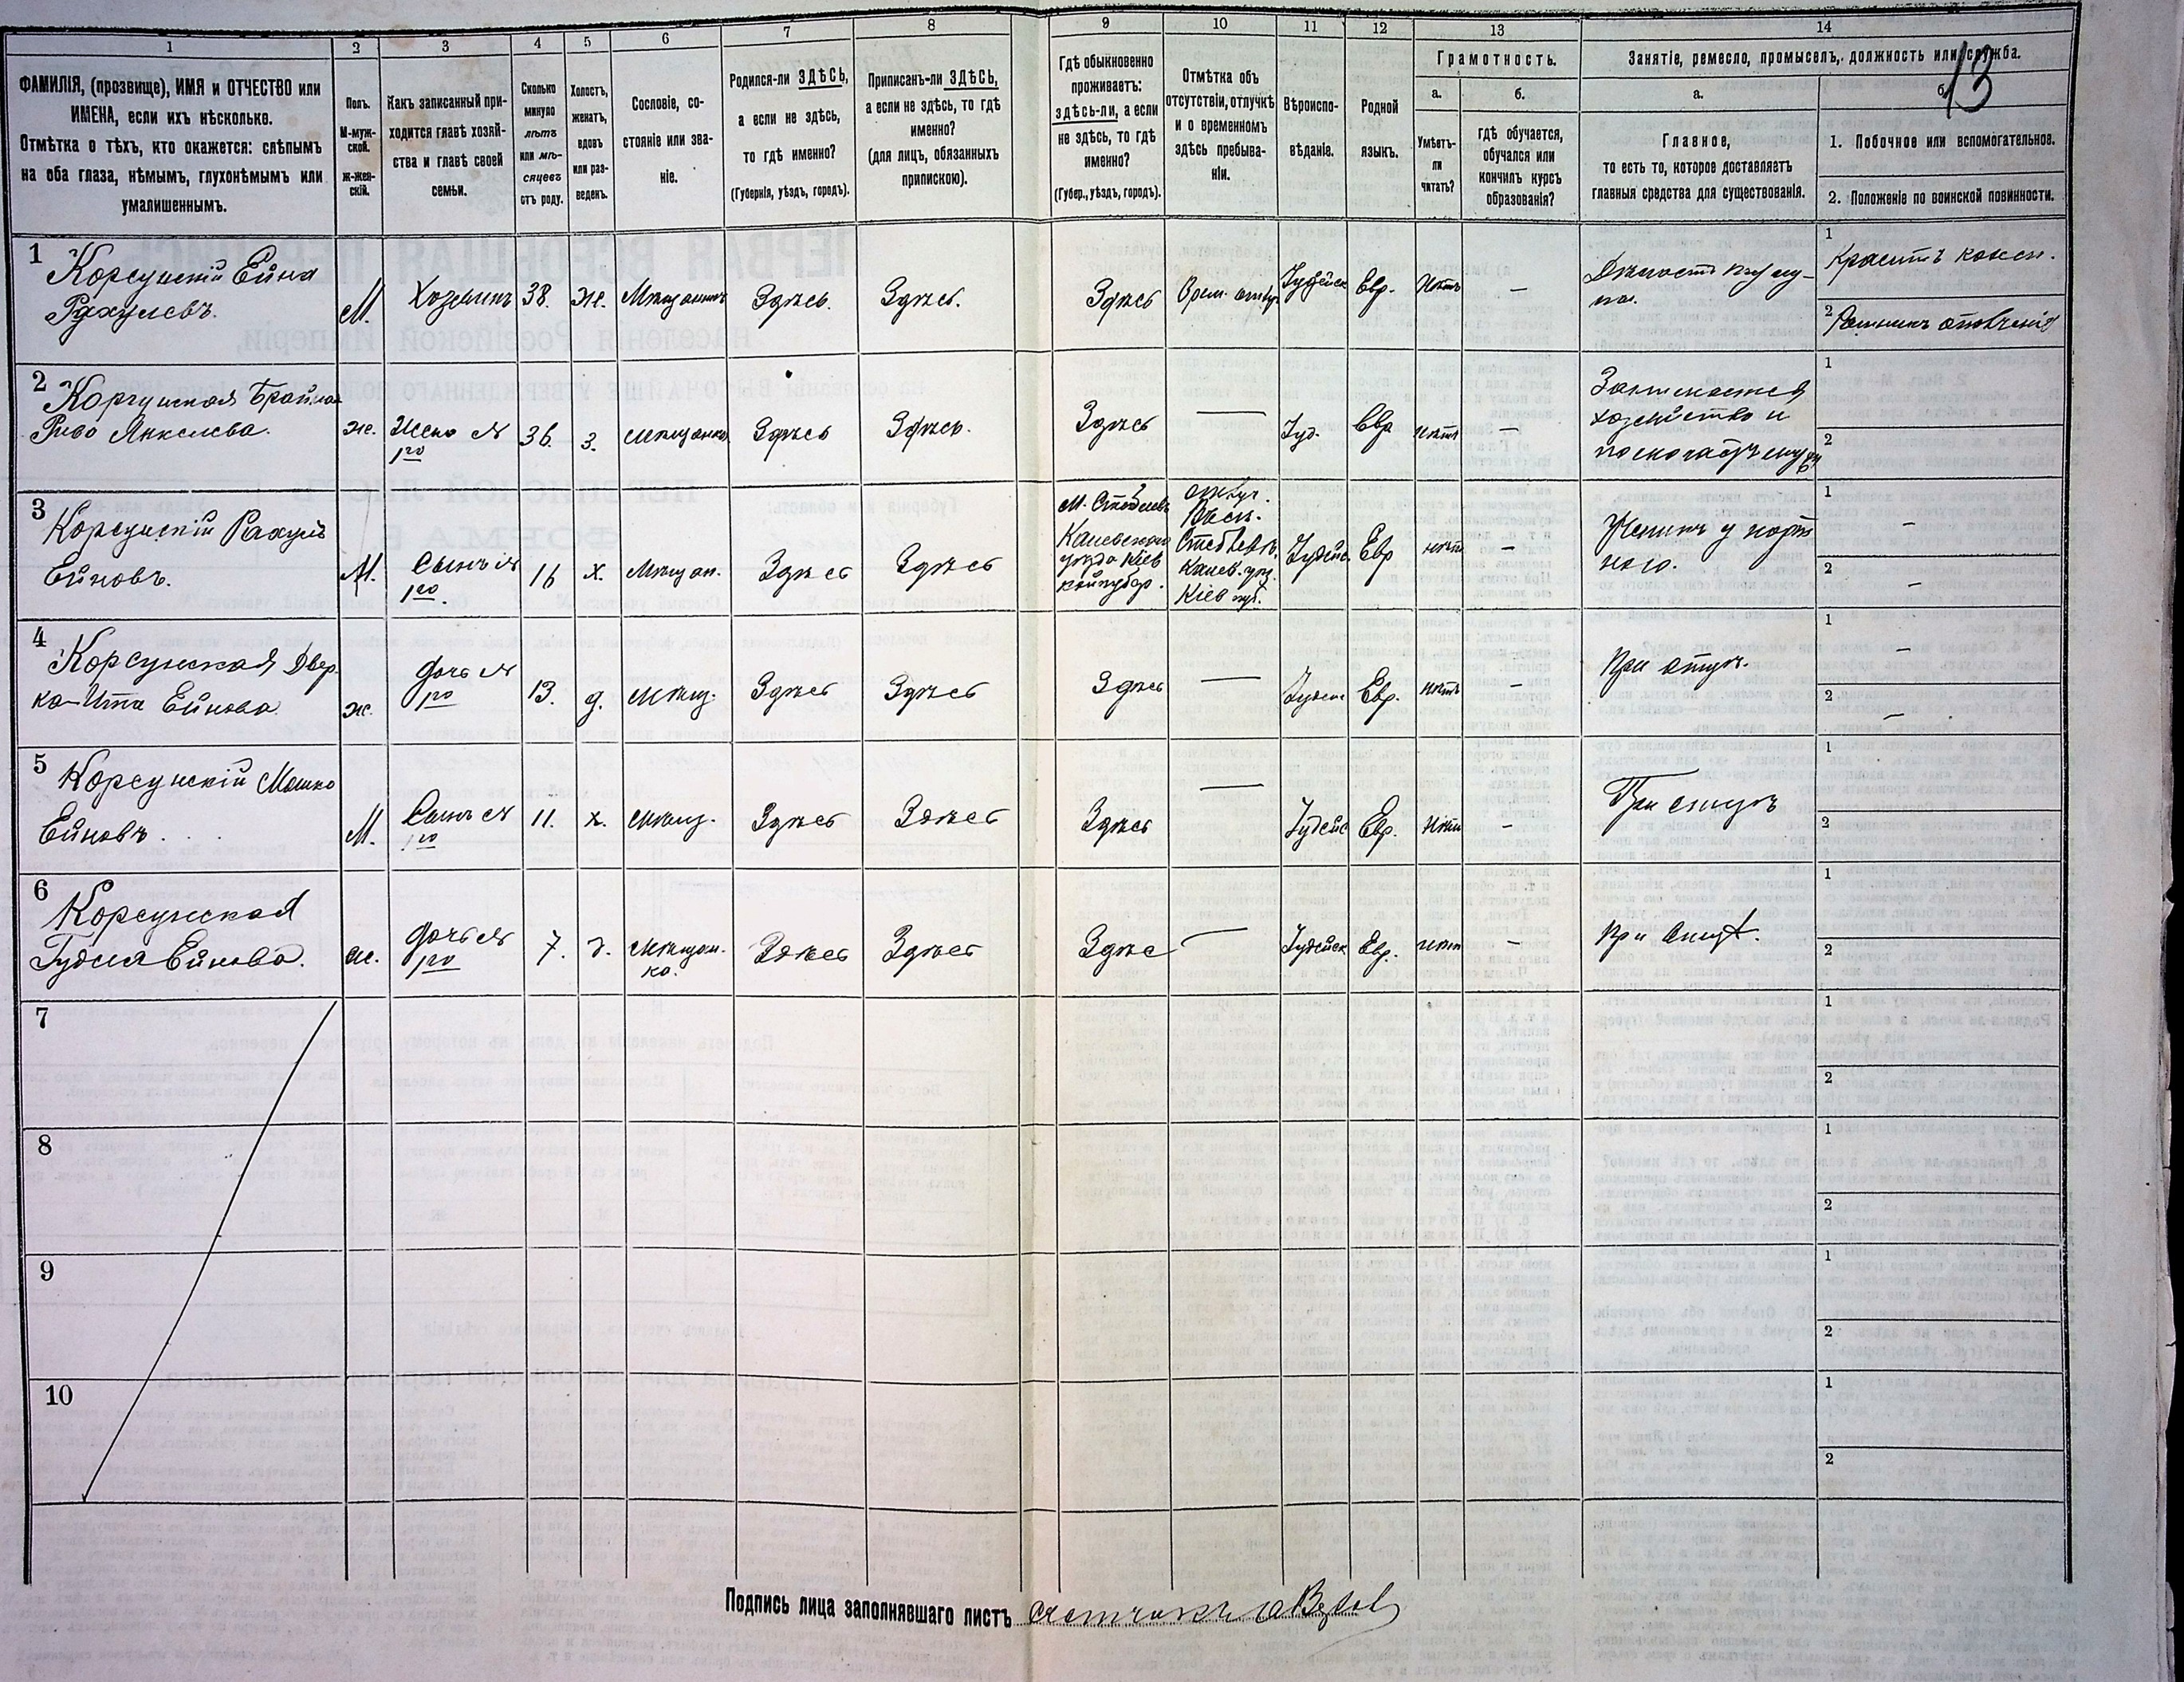 1 2 3 4 5 6 7 8 9 10 11 12 13 14
ФАМИЛІЯ, (прозвище), ИМЯ и ОТЧЕСТВО или
ИМЕНА, если ихъ нѣсколько.
Отмѣтка о тѣхъ, кто окажется: слѣпымъ
на оба глаза, нѣмымъ, глухонѣмымъ или
умалишеннымъ.
Полъ.
М-муж-
ской.
Ж-жен-
скій.
Какъ записанный при-
ходится главѣ хозяй-
ства и главѣ своей
семьи.
Сколько
минуло
лѣтъ
или мѣ-
сяцевъ
отъ роду.
Холостъ,
женатъ,
вдовъ
или раз-
веденъ.
Сословіе, со-
стояніе или зва-
ніе.
Родился-ли ЗДѢСЬ,
а если не здѣсь,
то гдѣ именно?
(Губернія, уѣздъ, городъ).
Приписанъ-ли ЗДѢСЬ,
а если не здѣсь, то гдѣ
именно?
(для лицъ, обязанныхъ
припискою).
Гдѣ обыкновенно
проживаетъ:
здѣсь-ли, а если
не здѣсь, то гдѣ
именно?
(Губер., уѣздъ, городъ).
Отмѣтка объ
отсутствіи, отлучкѣ
и о временномъ
здѣсь пребыва-
ніи.
Вѣроиспо-
вѣданіе.
Родной
языкъ.
Грамотность.
а.
Умѣетъ-
ли
читать?
б.
гдѣ обучается,
обучался или
кончилъ курсъ
образованія?
Занятіе, ремесло, промыселъ, должность или служба.
13
а.
Главное,
то есть то, которое доставляетъ
главныя средства для существованія.
б.
1. Побочное или вспомогательное.
2. Положеніе по воинской повинности.
1 Корсунскій Ейна
Рахулевъ.
М. Хозяинъ 38. Ж. Мѣщанинъ Здѣсь. Здѣсь. Здѣсь Врем. отлуч. Іудейск Евр. Нѣтъ —
1 Краситъ кожи.
2 Ратникъ ополченія
2 Корсунская Брайна
Рива Янкелева.
ж. Жена я 36. з. мѣщанка Здѣсь Здѣсь. Здѣсь — Іуд. Евр нѣтъ —
1го
Занимается
хозяйство и
1
2
3 Корсунскій Рахуль
Ейновъ.
М. Сынъ я 16 х. мѣщан. Здѣсь Здѣсь
1го
Каневскаго
уѣзда Кіев
ской губер.
отлуч.
Канев. уѣз.
Кіев губ.
Іудейс. Евр нѣтъ —
Ученикъ у порт
ного.
1 —
2 —
4 Корсунская Двер-
ка-Ита Ейнова.
ж. дочь я 13. д. мѣщ. Здѣсь Здѣсь Здѣсь — Евр. нѣтъ —
1го
При отцѣ.
1 —
2 —
5 Корсунскій Мошко
Ейновъ.
М. Сынъ я 11. х. мѣщ. Здѣсь Здѣсь Здѣсь — Іудейс Евр. Нѣтъ —
1го
При отцѣ
1
2
6 Корсунская
Гудся Ейнова.
ж. дочь я 7. д. мѣщан- Здѣсь Здѣсь Здѣс — Іудейск Евр. нѣтъ —
1го
ка.
При отцѣ.
1
2
7
1
2
8
1
2
9
1
2
10
1
2
Подпись лица заполнявшаго листъ счетчикъ